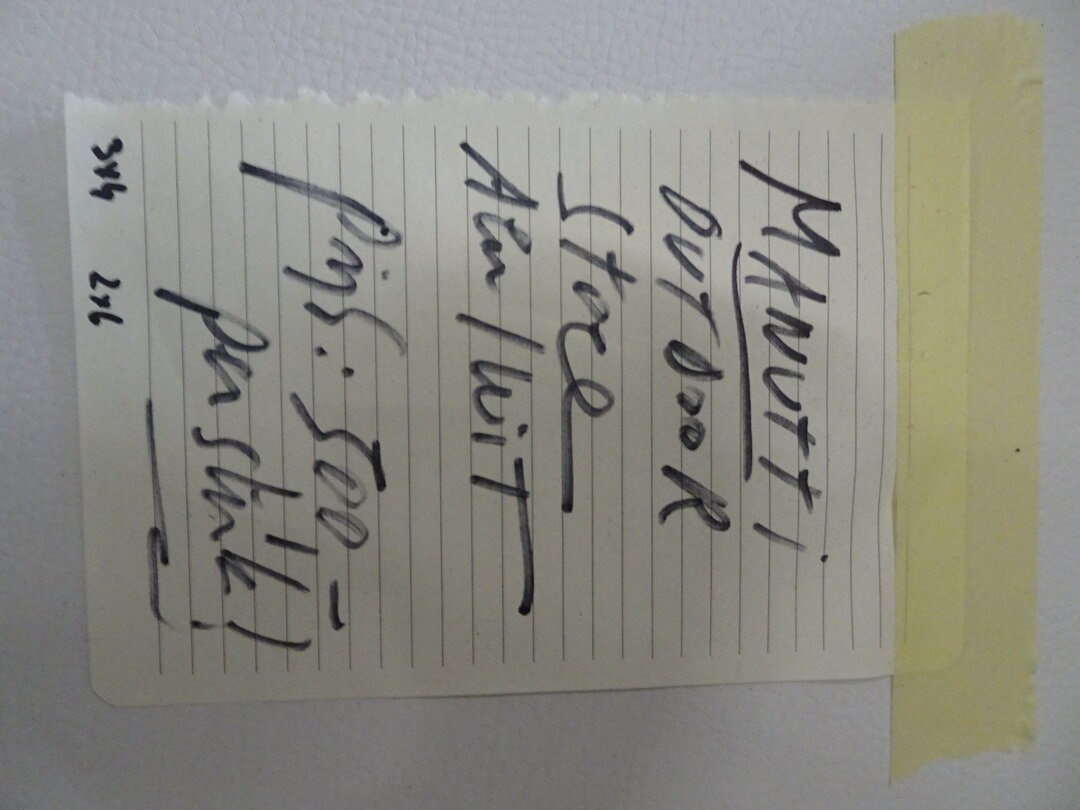 MANUTTI
OUTDOOR
Stoel
Alu/WIT
Prijs: 500 -
per stuk!
3x4 2x6